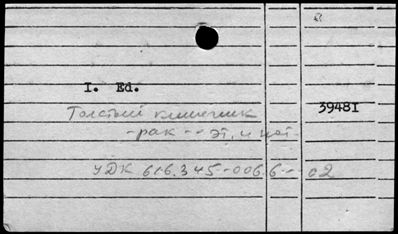 I. Ed.
Толстый кишечник 39481
-рак -- эт. и пат.
УДК 616.345-006.6--02